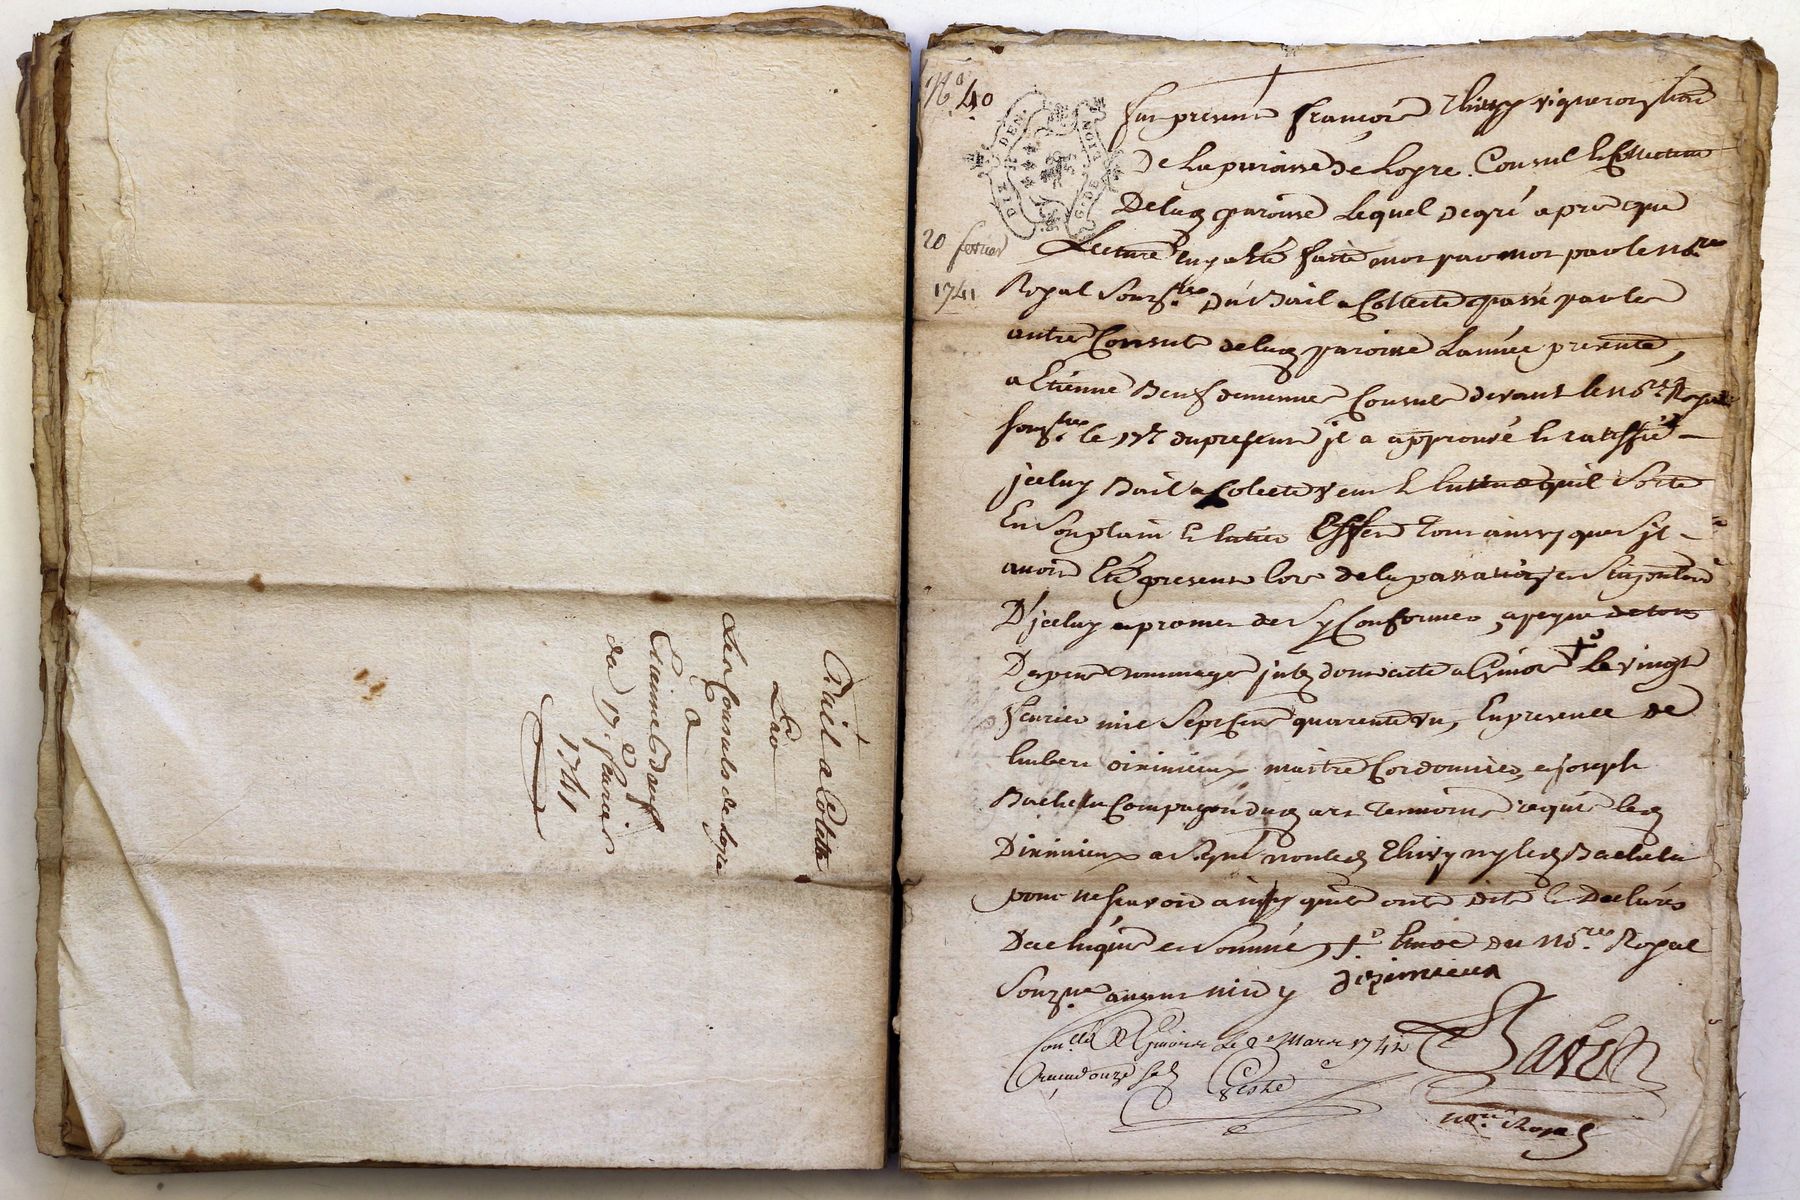 Bail a Colette
Par
Les Consuls de Loyre
a
Etienne Bœuf
du 17e feurier
1741
No 40
GÉN. DE LION
DIX DEN.
20 fevrier
1741
fut present françois Thivy vigneron
De La paroisse de Loyre Consul & Collecteur
Delad paroisse Lequel de gré apres que
Lecture luy a Eté faitte mot par mot par le nore
Royal Soussne Du Bail a Collecte passé par les
autres Consuls delad paroisse Lannée presente,
a Etienne Beuf Consul devant le nore Royal
Soussne le 17e du present jl a approuvé & ratiffié
jceluy Bail a Colecte veut & quil Sorte
En Son plain & Entier Effet tout ainsy que sy jl
avoit Eté present lors de la passation
D'jceluy a promet de Sy Conformer, a peyne de tous
Depens Dommages jnts dont acte a Givors Le vingt
feurier mil Sept Cent quarente un, En presence de
maitre Cordonnier, & joseph
Bachelu Compagnon dud art temoins requis led
a Signé non led Thivy ny led Bachelu
pour ne scavoir ainsy quils ont dit & Declaré
De ce Enquis et Sommé, du nore Royal
Soussne avant midy
Conllé a Givors le 2e Mars 1741
Receu douze sols
nore Royal